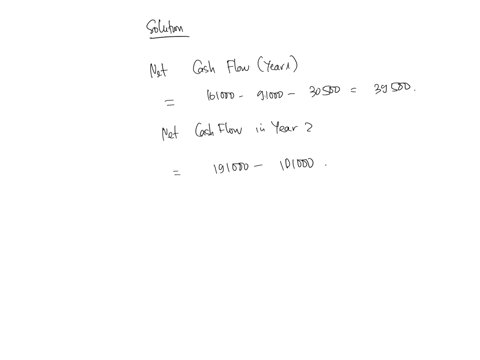 Solution
Net Cash Flow (Year 1)
= 161000 - 91000 - 30500 = 39500.
Net Cash Flow in Year 2
= 191000 - 101000.